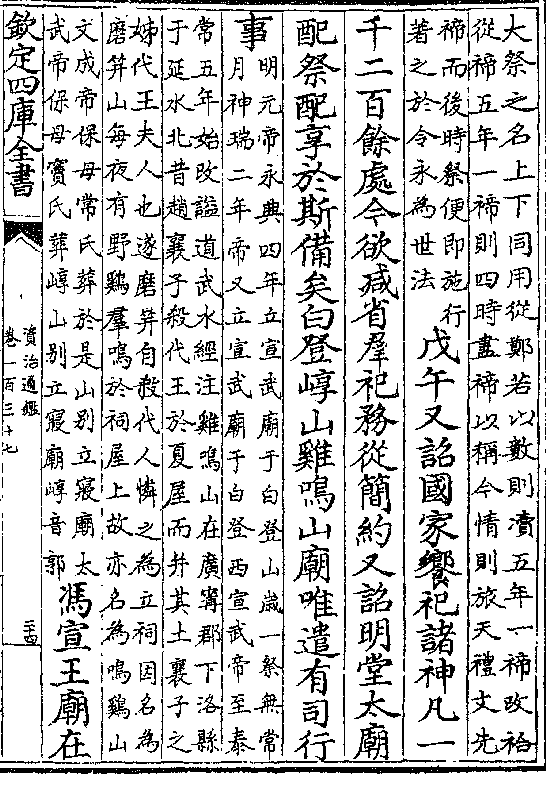 大祭之名上下同用從鄭若以數則瀆五年一禘改祫
從禘五年一禘則四時盡禘以稱今情則旅天禮文先
禘而後時祭便即施行
著之於令永為世法
戊午又詔國家饗祀諸神凡一
千二百餘處今欲減省羣祀務從簡約又詔明堂太廟
配祭配享於斯備矣白登崞山雞鳴山廟唯遣有司行
事
明元帝永典四年立宣武廟于白登山歲一祭無常
月神瑞二年帝又立宣武廟于白登西宣武帝至泰
常五年始改謚道武水經注雞鳴山在廣甯郡下洛縣
于延水北昔趙襄子殺代王於夏屋而并其土襄子之
姊代王夫人也遂磨笄自殺代人憐之為立祠因名為
磨笄山每夜有野鷄羣鳴於祠屋上故亦名為鳴鷄山
文成帝保母常氏葬於是山別立寢廟太
武帝保母竇氏葬崞山別立寢廟崞音郭
馮宣王廟在
欽定四庫全書
資治通鑑
卷一百三十七
三十四